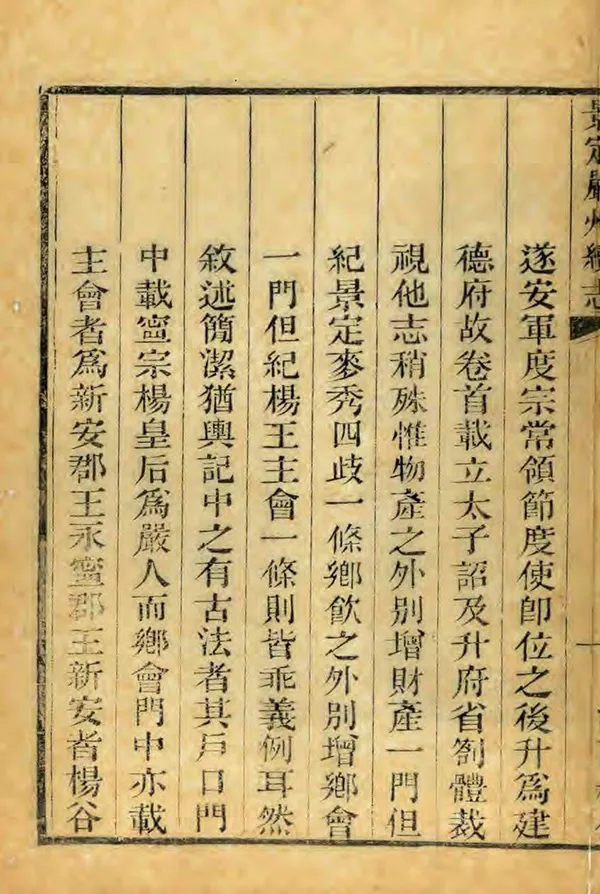 景定嚴州續志
遂安軍度宗常領節度使卽位之後升爲建
德府故卷首載立太子詔及升府省劄體裁
視他志稍殊惟物產之外別增財產一門但
紀景定麥秀四歧一條鄉飲之外別增鄉會
一門但紀楊王主會一條則皆乖義例耳然
敘述簡潔猶輿記中之有古法者其戶口門
中載寧宗楊皇后爲嚴人而鄉會門中亦載
主會者爲新安郡王永寧郡王新安者楊谷